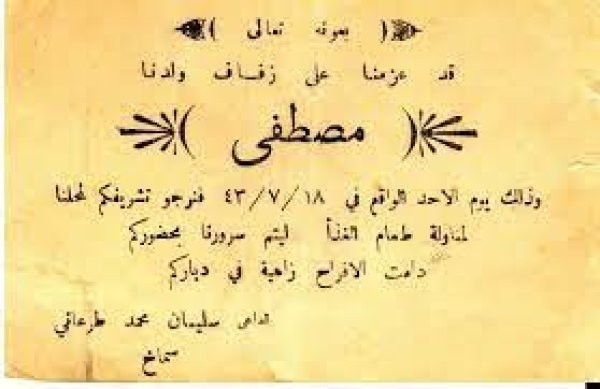 ( بعونه تعالى )
قد عزمنا على زفاف ولدنا
( مصطفى )
وذلك يوم الاحد الواقع في ١٨ / ٧ / ٤٣ فنرجو تشريفكم لمحلنا
لمناولة طعام الغذأ ليتم سرورنا بحضوركم
دامت الافراح زاهية في دياركم
الداعي سليمان محمد طرعاني
سماخ